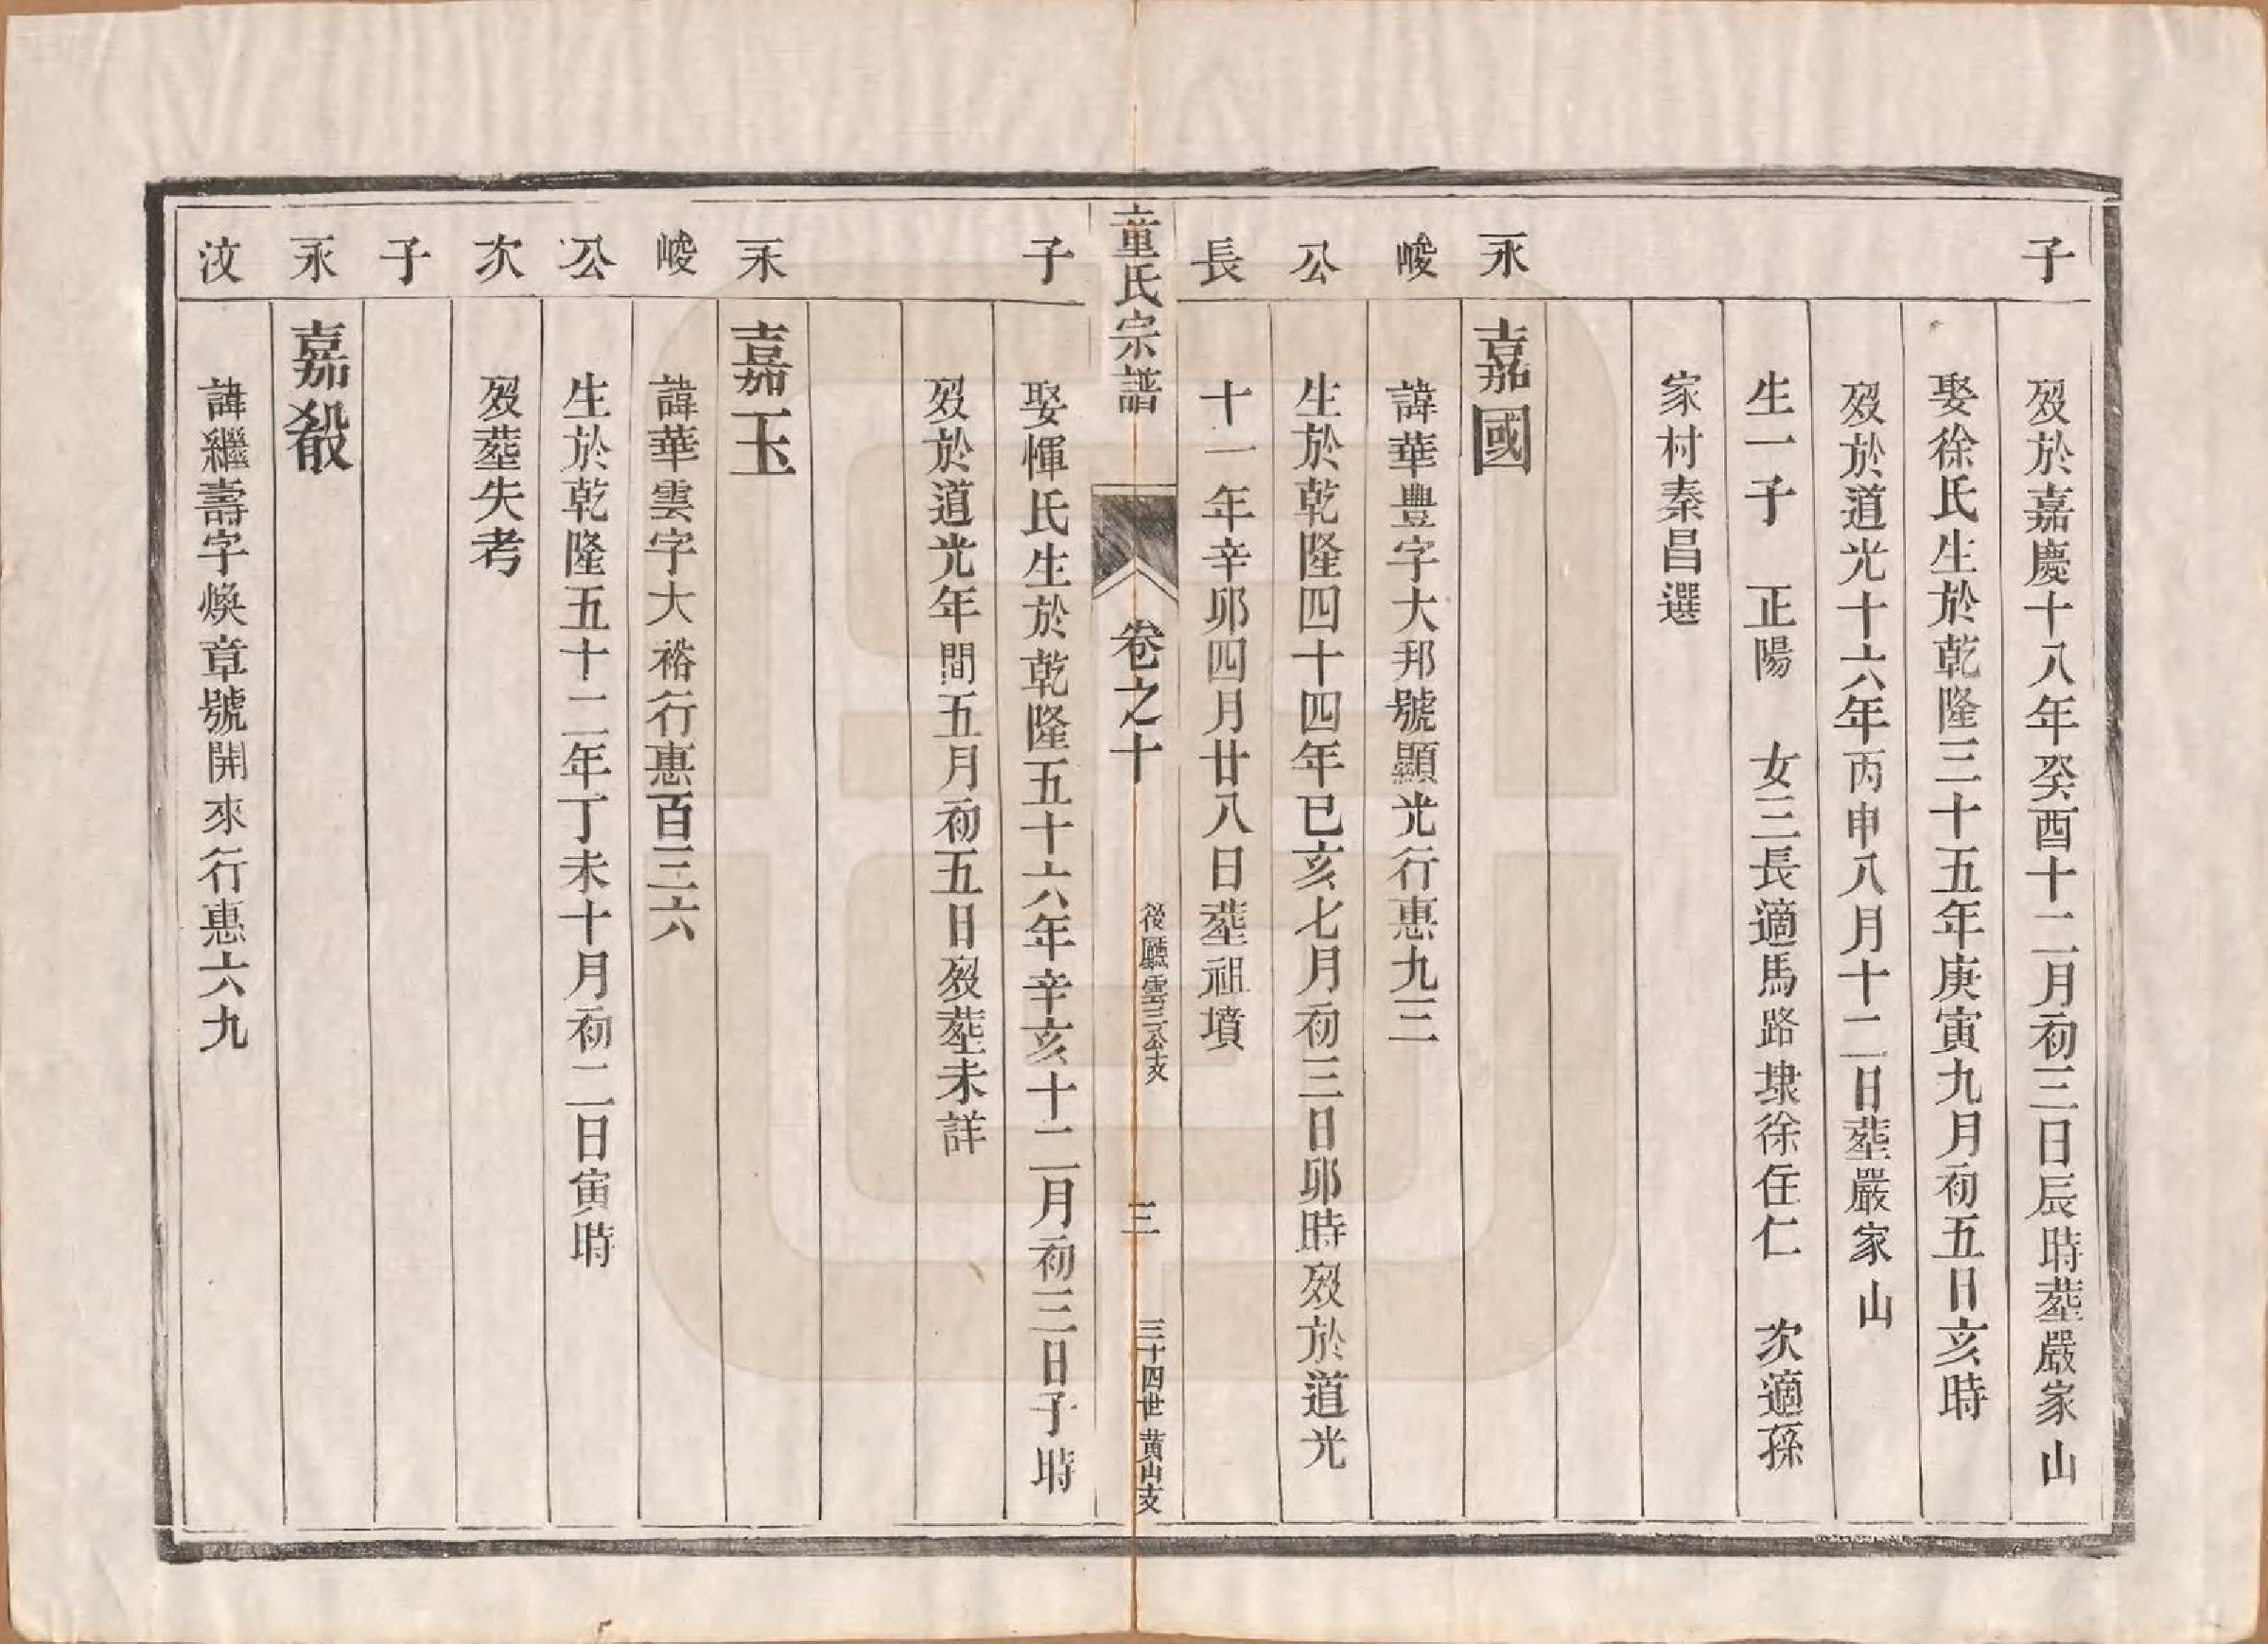 子
歿於嘉慶十八年癸酉十二月初三日辰時塟嚴家山
娶徐氏生於乾隆三十五年庚寅九月初五日亥時
歿於道光十六年丙申八月十二日塟嚴家山
生一子 正陽 女三長適馬路埭徐在仁 次適孫
家村秦昌選
永峻公長
嘉國
諱華豊字大邦號顯光行惠九三
生於乾隆四十四年已亥七月初三日卯時歿於道光
十一年辛卯四月廿八日塟祖墳
童氏宗譜
卷之十
後廳雲三公支
三
三十四世 黄山支
子
娶惲氏生於乾隆五十六年辛亥十二月初三日子時
歿於道光年間五月初五日歿塟未詳
永峻公次子
嘉玉
諱華雲字大裕行惠百三六
生於乾隆五十二年丁未十月初二日寅時
歿塟失考
永汶
嘉毅
諱繼壽字煥章號開來行惠六九